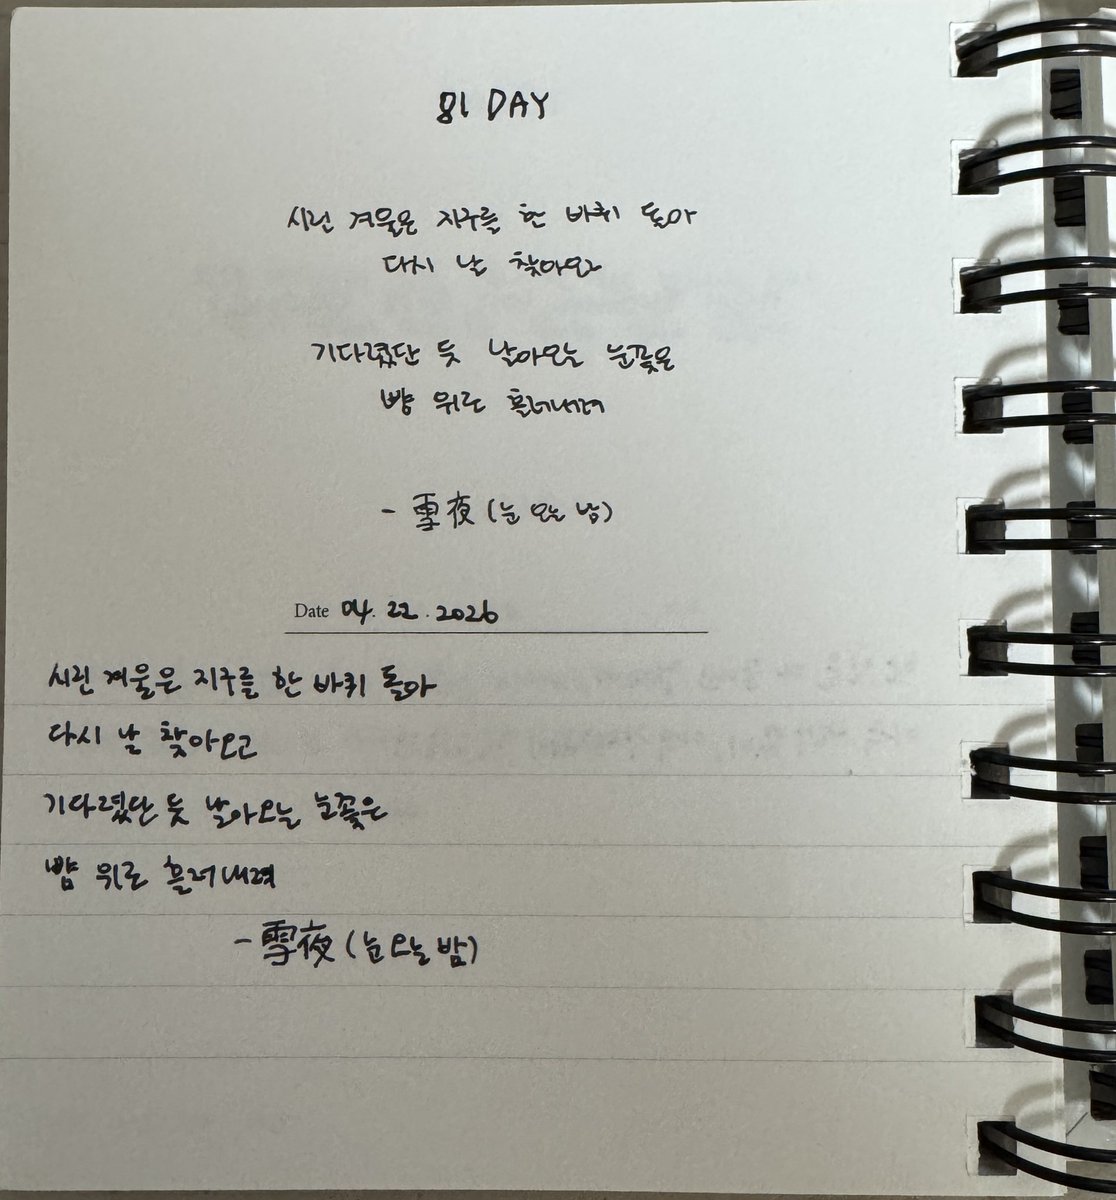 81 DAY
시린 겨울은 지구를 한 바퀴 돌아
다시 날 찾아오고
기다렸단 듯 날아오는 눈꽃은
뺨 위로 흘러내려
- 雪夜 (눈 오는 밤)
Date 04. 22. 2026
시린 겨울은 지구를 한 바퀴 돌아
다시 날 찾아오고
기다렸단 듯 날아오는 눈꽃은
뺨 위로 흘러내려
- 雪夜 (눈 오는 밤)